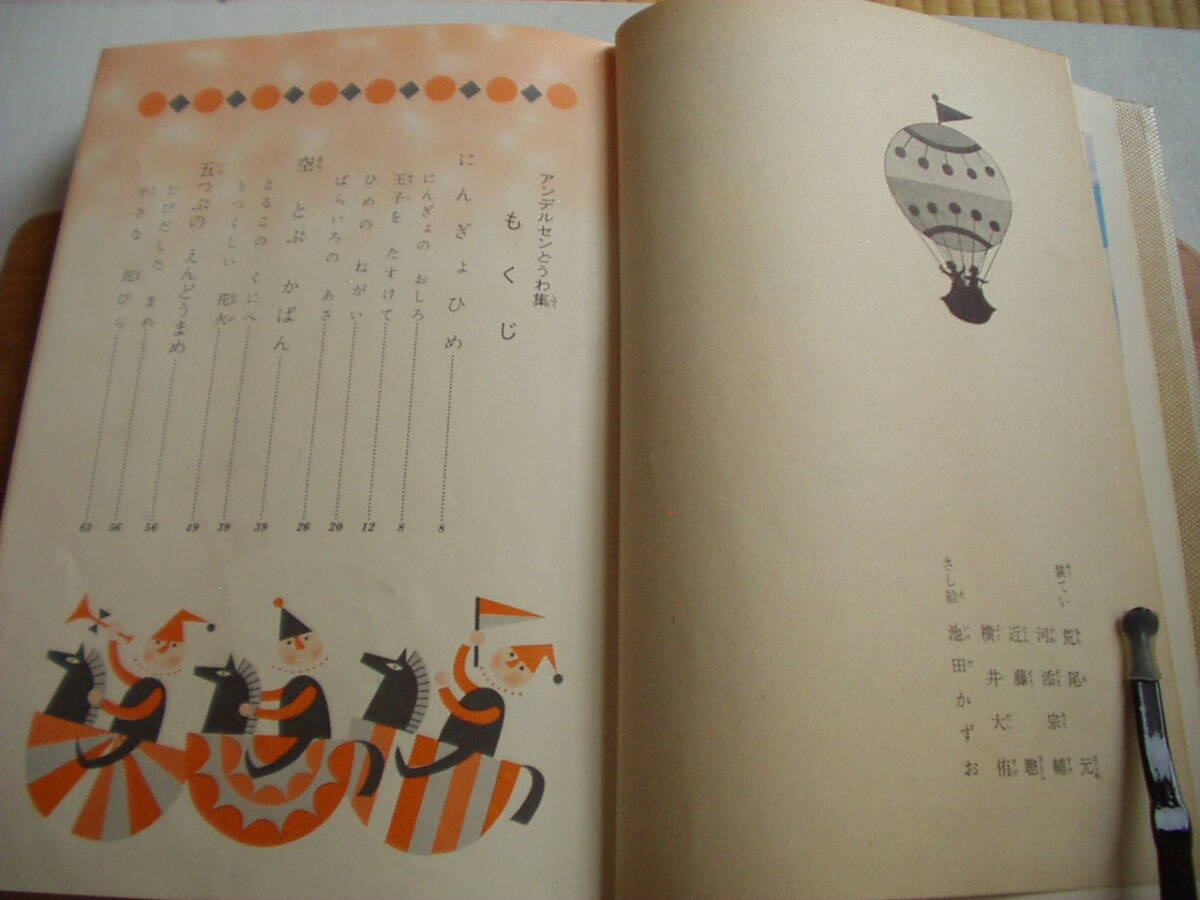 装てい
荒尾 元
河添宗輔
近藤 聰
横井大侑
さし絵
池田かずお
アンデルセンどうわ集
もくじ
にんぎょひめ 8
にんぎょの おしろ 8
王子を たすけて 12
ひめの ねがい 20
ばらいろの あさ 26
空 とぶ かばん 39
とるこの くにへ 39
うつくしい 花火 49
五つぶの えんどうまめ 56
とびだした まめ 56
小さな 花びら 63